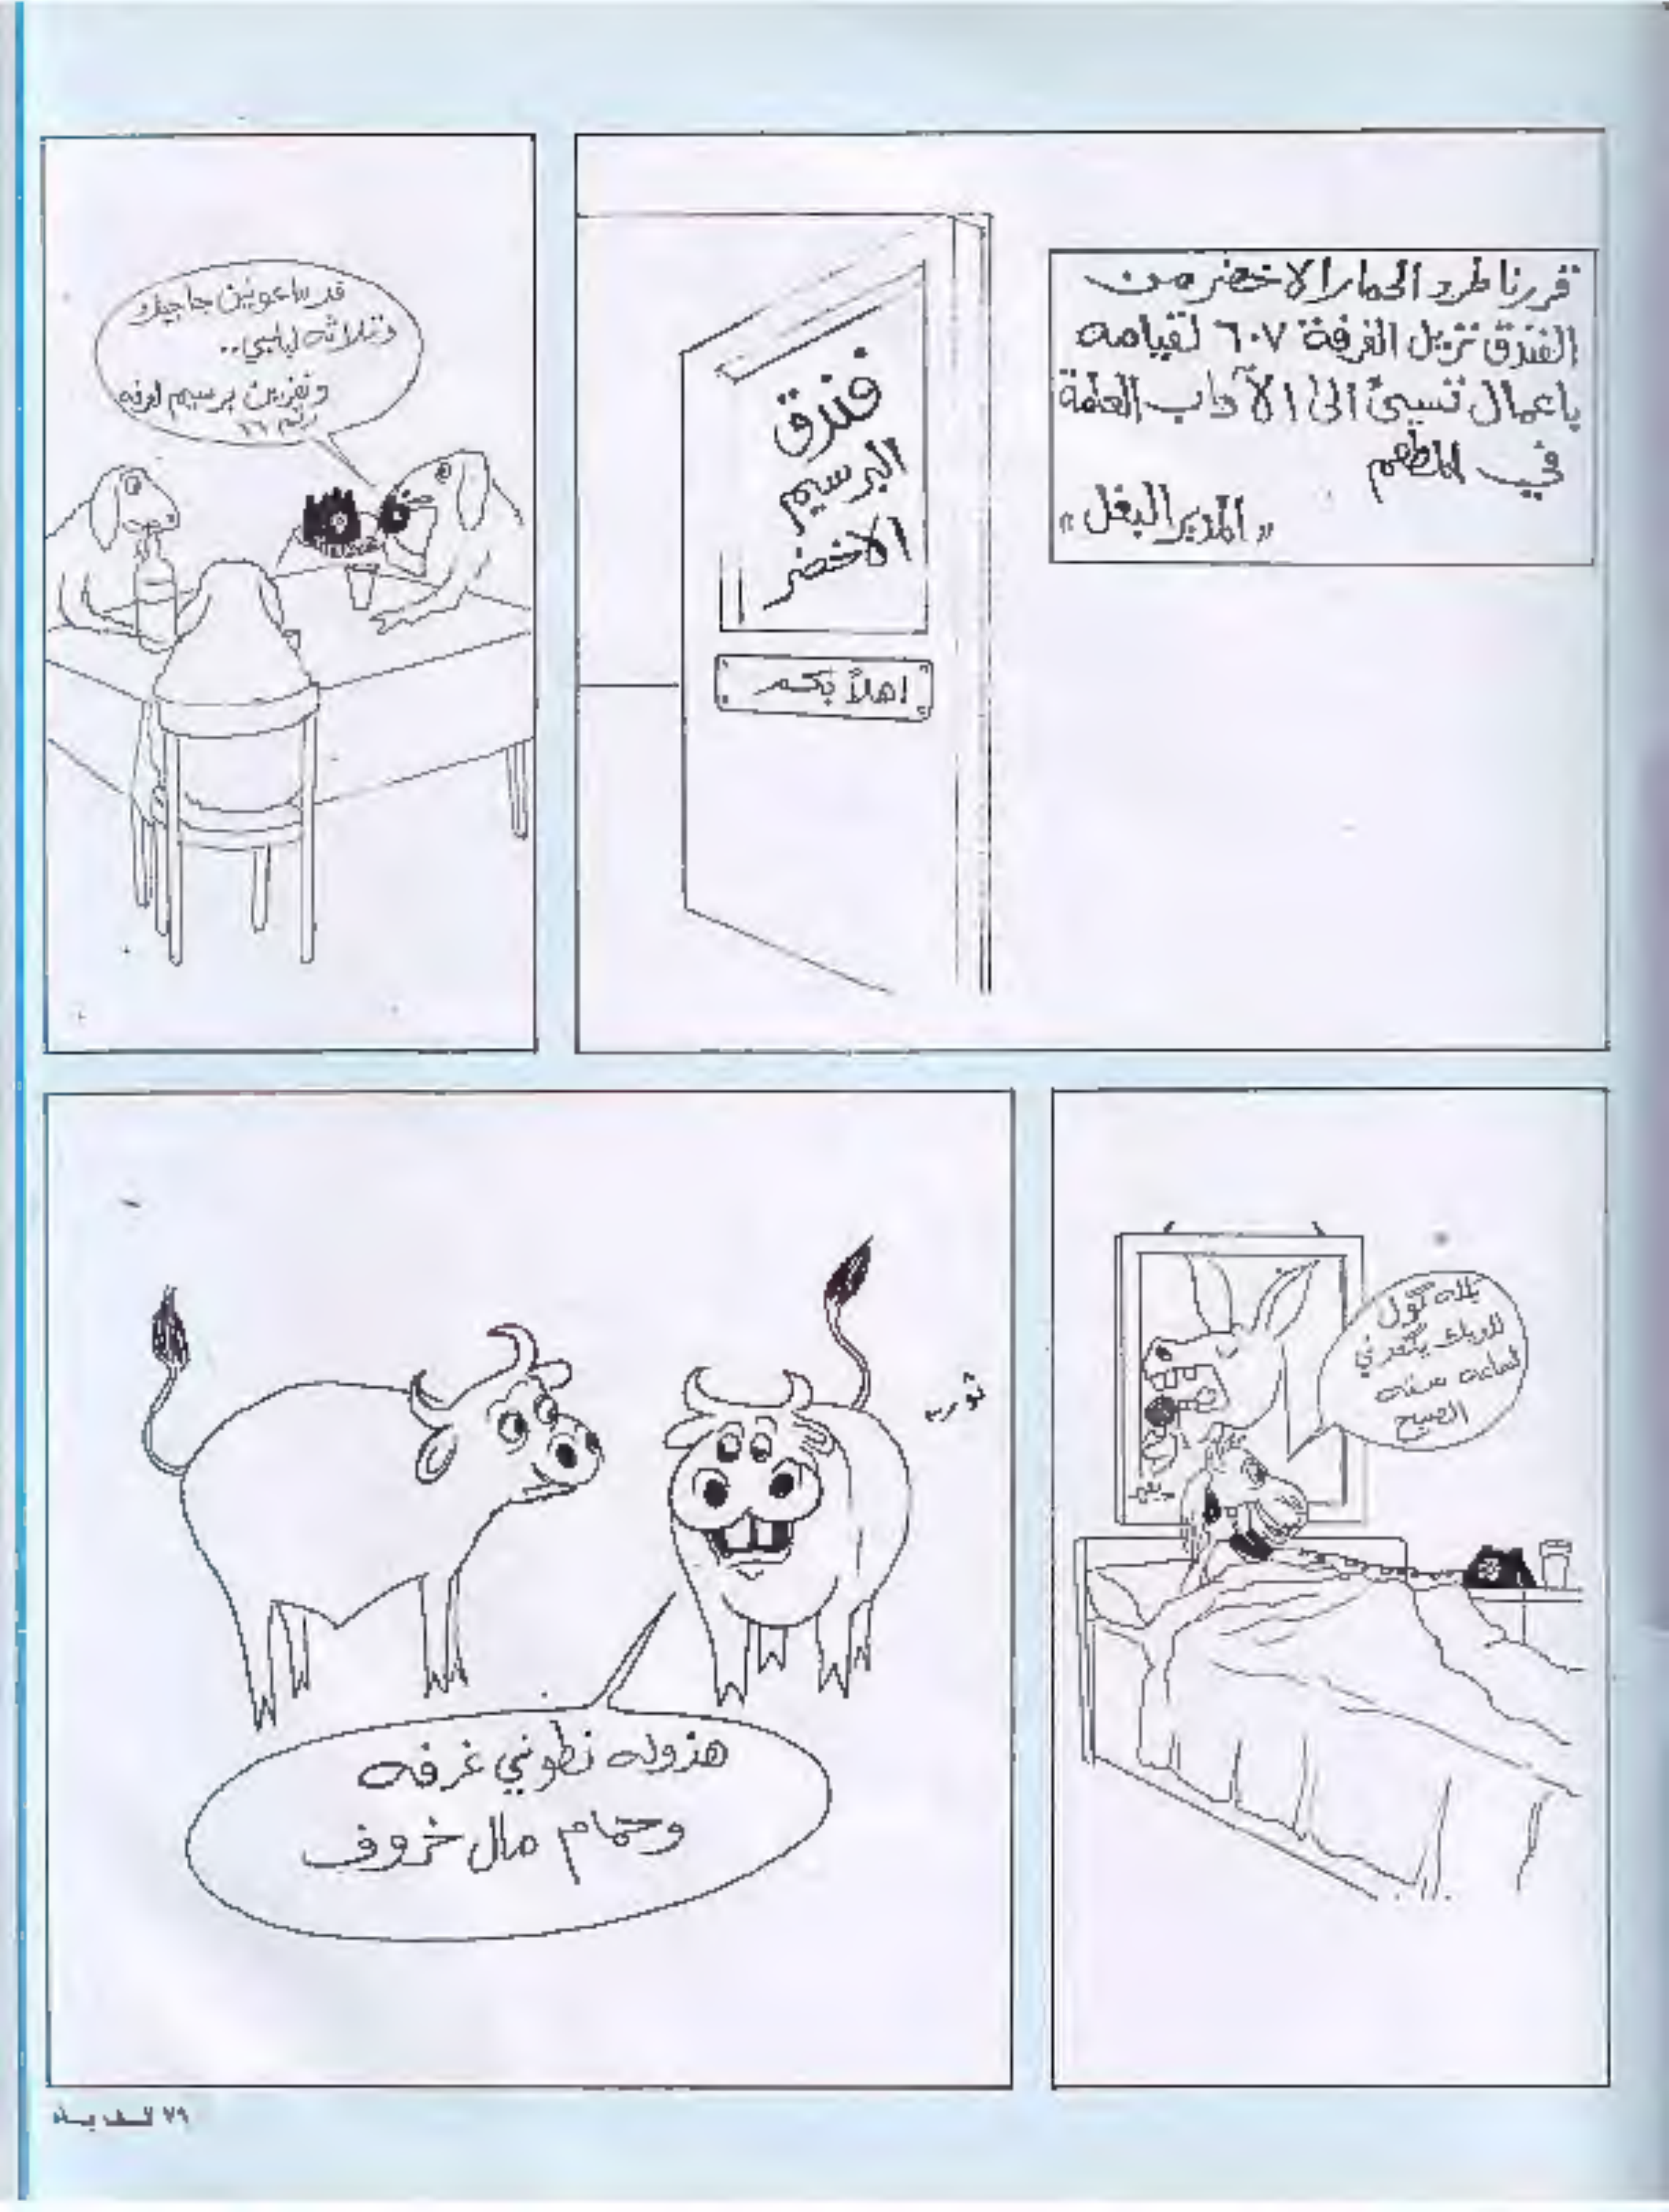 قررنا طرد الحمار الاخضر من
الفندق نزيل الغرفة ٦٠٧ لقيامه
باعمال تسيئ الى الآداب العامة
في المطعم
"المدير البغل"
فندق
البرسيم
الاخضر
اهلاً بكم
جاجيك
وثلاثه لبلبي..
ونفرين برسيم لغرفه
رقم ٢٦
يلله گول
للديك يگعدني
لساعه سته
الصبح
ثور
هذوله نطوني غرفه
وحمام مال خروف
٧٩